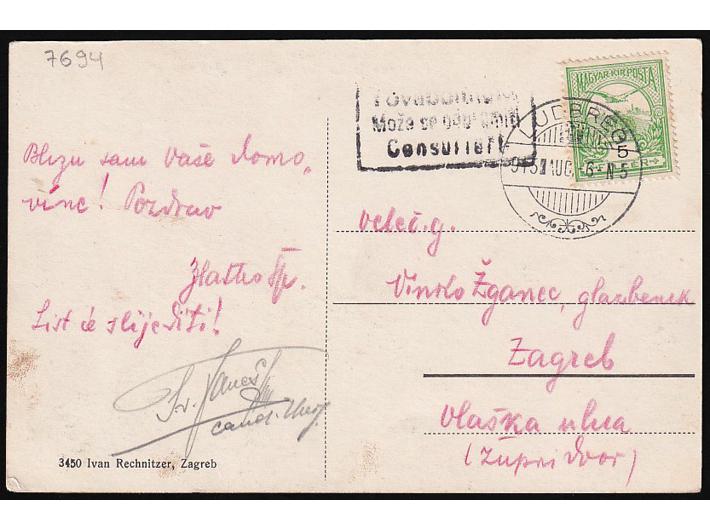 7694
Továbbítható
Može se odpremiti
Censuriert
MAGYAR KIR. POSTA
5
LUDBREG
915 AUG. 6 N 5
Blizu sam Vaše domo,
vine! Pozdrav
Zlatko Šp.
List će slijediti!
cand.
veleč. g.
Vinko Žganec, glazbenik
Zagreb
Vlaška ulica
(Župni dvor)
3450 Ivan Rechnitzer, Zagreb